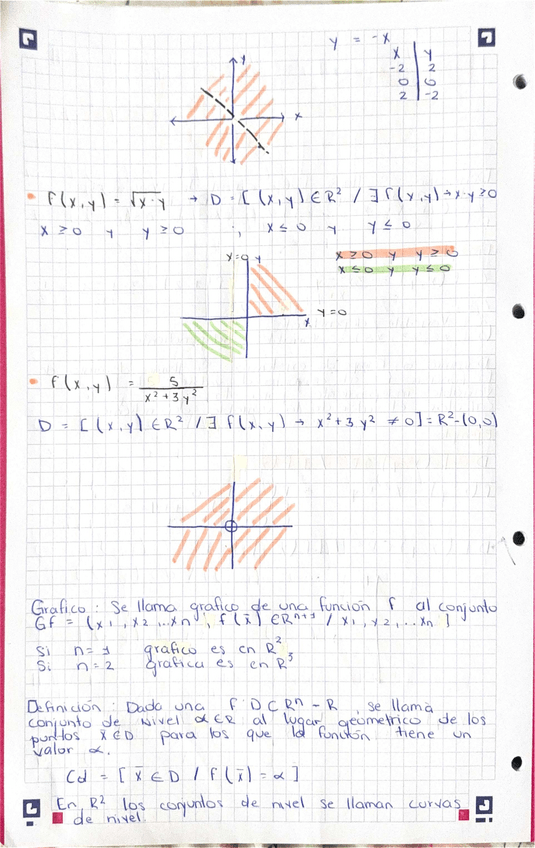 y = -x
x | y
-2 | 2
0 | 0
2 | -2
y
x
• f(x,y) = √x·y → D = [(x,y) ∈ R² / ∃ f(x,y) → x·y ≥ 0
x ≥ 0 y y ≥ 0 ; x ≤ 0 y y ≤ 0
x=0 y
x ≥ 0 y y ≥ 0
x ≤ 0 y y ≤ 0
y=0
x
• f(x,y) = 5 / x² + 3y²
D = [(x,y) ∈ R² / ∃ f(x,y) → x² + 3y² ≠ 0] = R² - (0,0)
Grafico : Se llama grafico de una función f al conjunto
Gf = (x1, x2 ...xn, f(x̄) ∈ Rⁿ⁺¹ / x1, x2, ...xn ]
Si n = 1 grafico es en R²
Si n = 2 grafica es en R³
Definición : Dada una f D ⊂ Rⁿ - R, se llama
conjunto de Nivel α ∈ R al lugar geometrico de los
puntos x̄ ∈ D para los que la función tiene un
valor α.
Cd = [ x̄ ∈ D / f(x̄) = α ]
En R² los conjuntos de nivel se llaman curvas
de nivel.